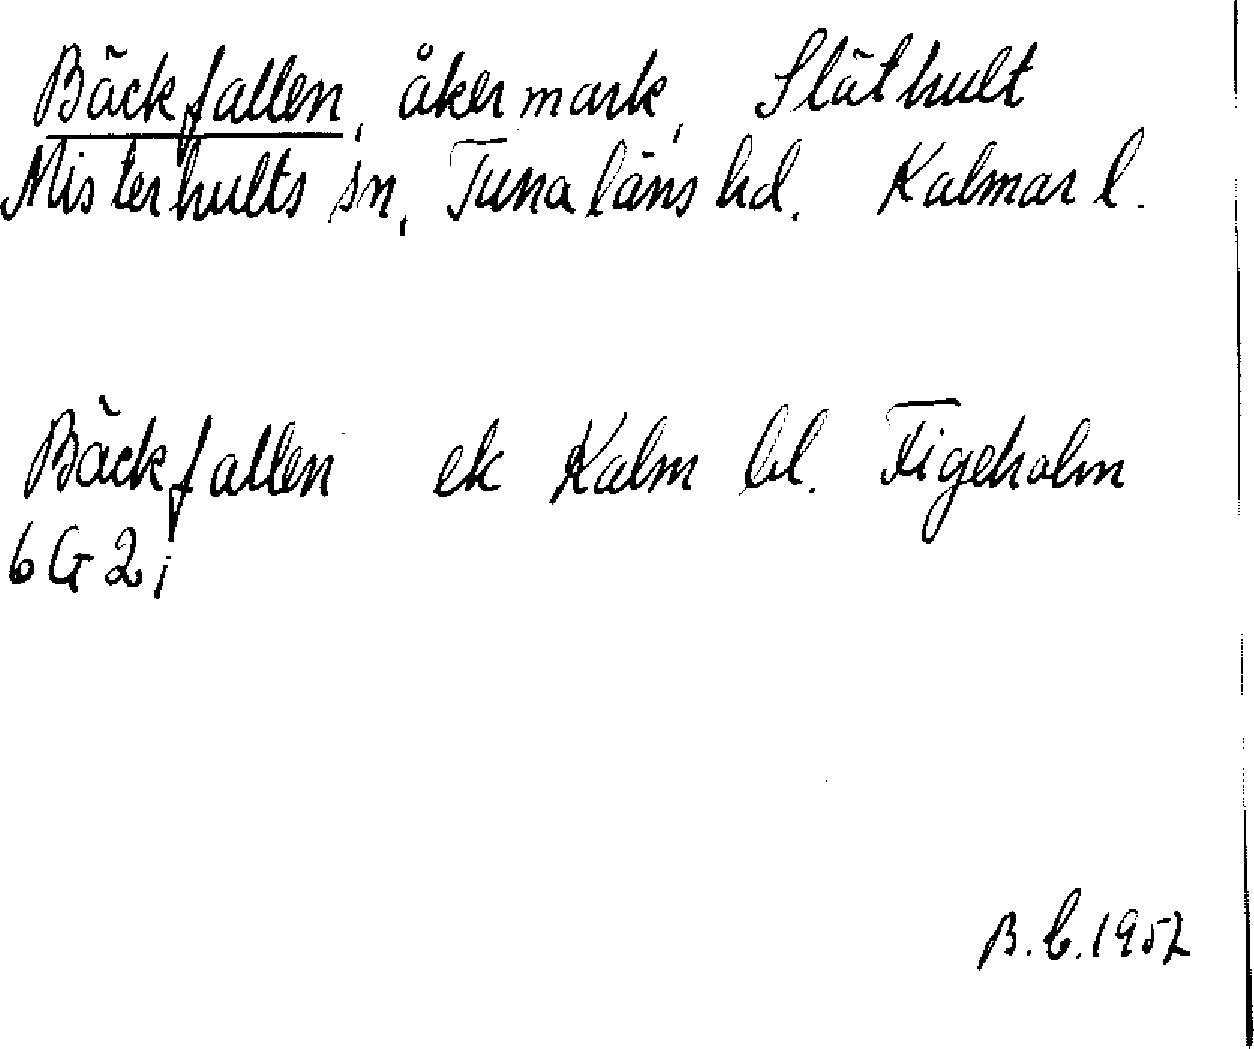 Bäckfallen, åkermark, Släthult
Misterhults sn, Tunaläns hd. Kalmar l.
Bäckfallen ek Kalm bl. Figeholm
6G2i
B.E. 1952